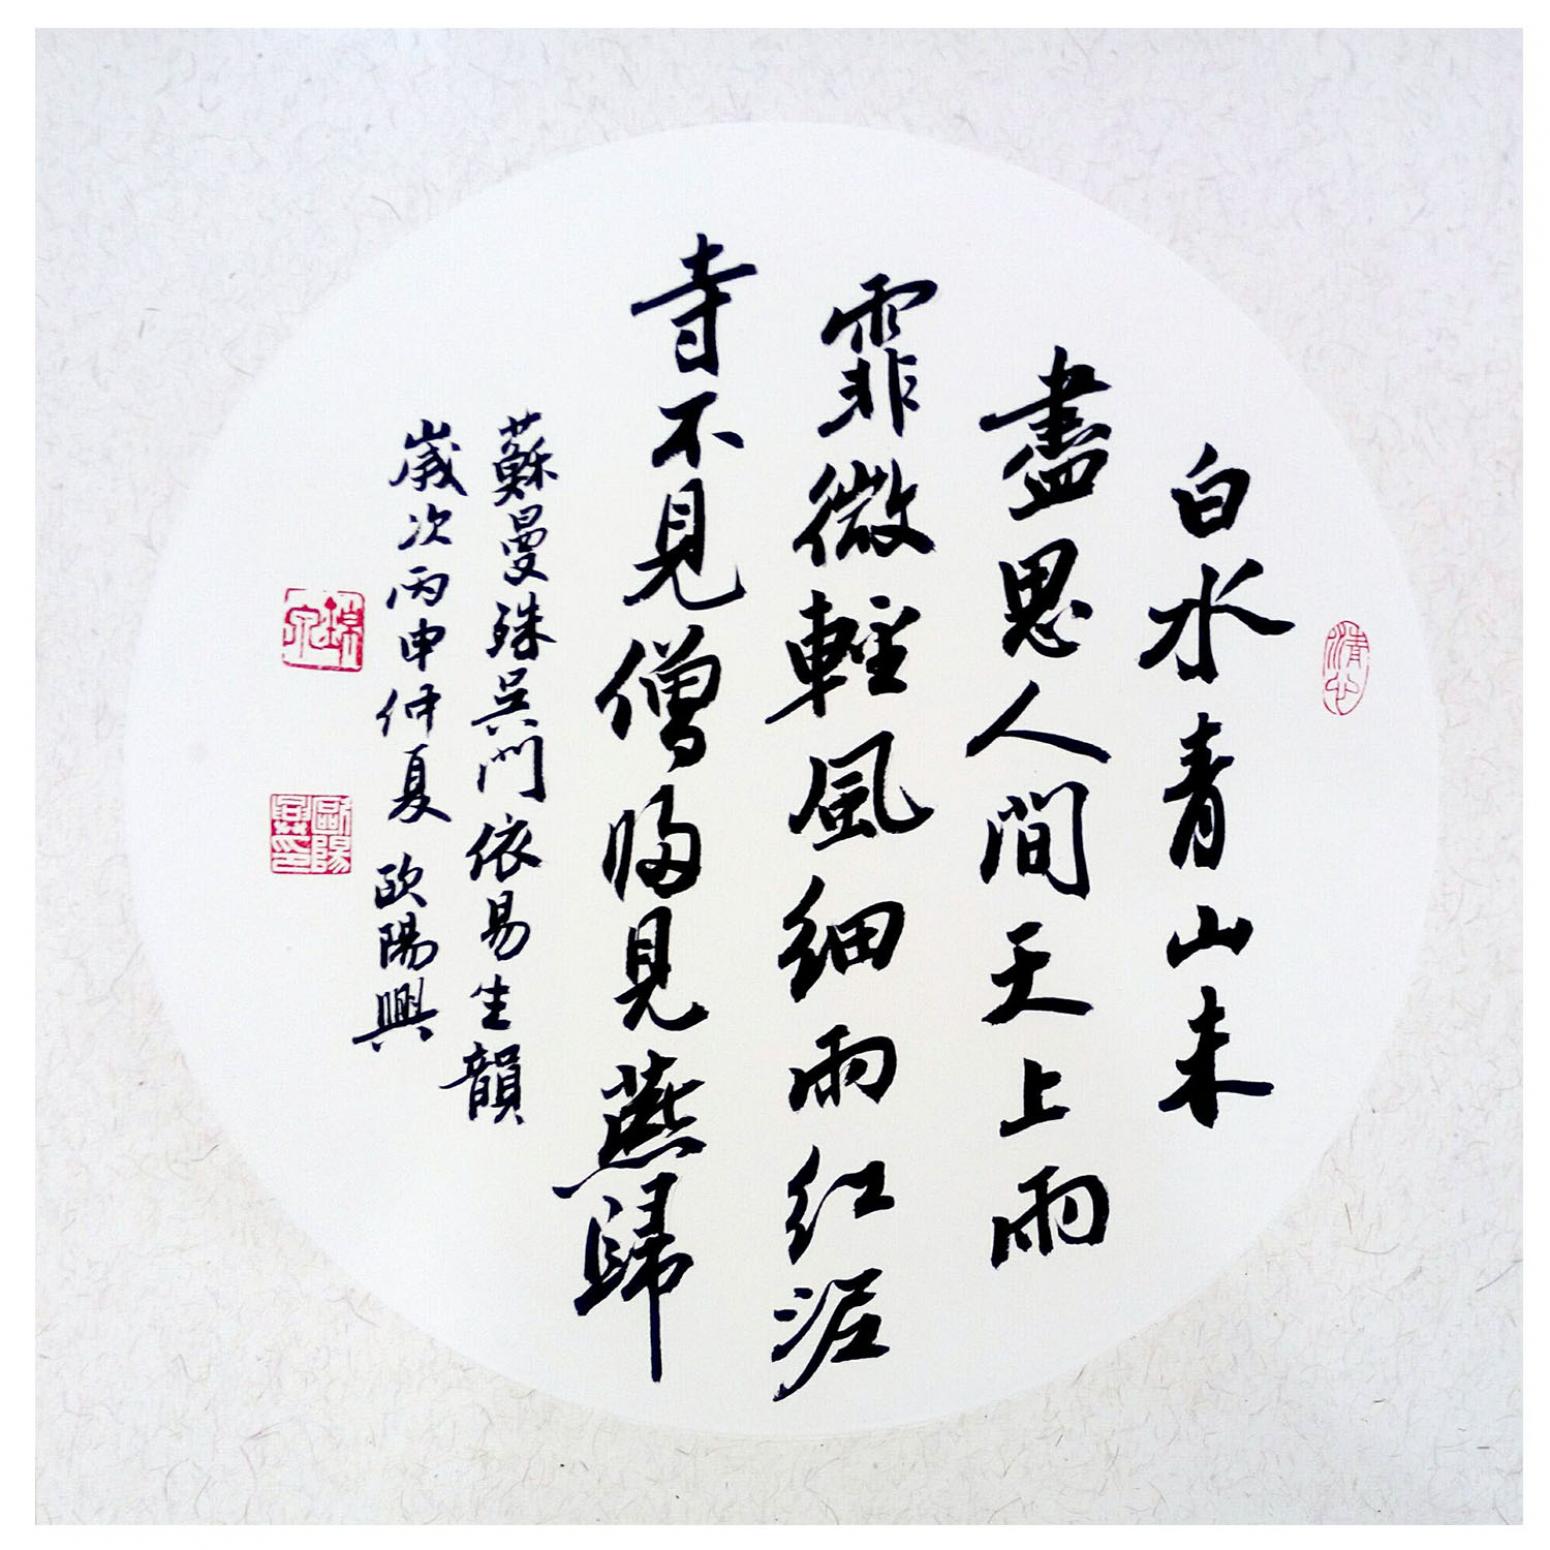 白水青山未
盡思人間天上兩
霏微輕風細雨紅泥
寺不見僧歸見燕歸
蘇曼殊吳門依易生韻
歲次丙申仲夏 欧陽興
清心
歐陽興印